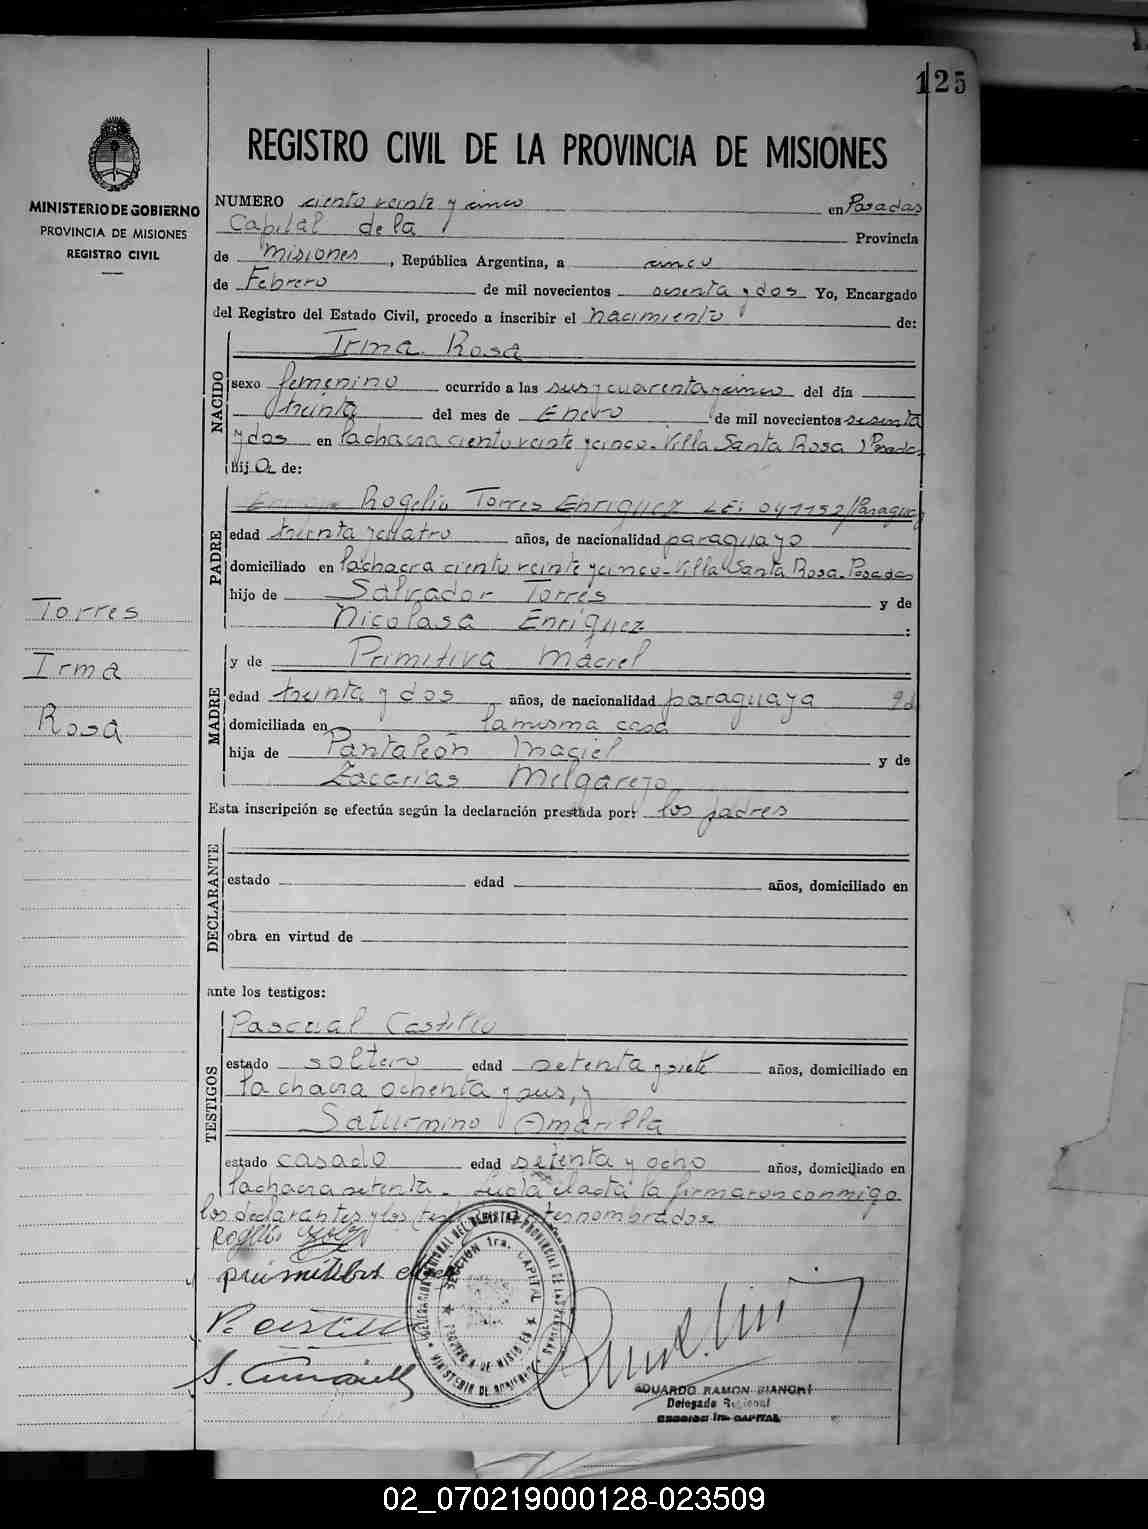 125
REGISTRO CIVIL DE LA PROVINCIA DE MISIONES
MINISTERIO DE GOBIERNO
PROVINCIA DE MISIONES
REGISTRO CIVIL
NUMERO ciento veinte y cinco en Posadas
Capital de la Provincia
de Misiones, República Argentina, a cinco
de Febrero de mil novecientos sesenta y dos Yo, Encargado
del Registro del Estado Civil, procedo a inscribir el nacimiento de:
Irma Rosa
NACIDO
sexo femenino ocurrido a las seis y cuarenta y cinco del día
treinta del mes de Enero de mil novecientos sesenta
y dos en la chacra ciento veinte y cinco - Villa Santa Rosa) Posadas
hija de:
Rogelio Torres Enriquez LE: 041152/Paraguay
PADRE
edad treinta y cuatro años, de nacionalidad paraguayo
domiciliado en la chacra ciento veinte y cinco - Villa Santa Rosa. Posadas
hijo de Salvador Torres y de
Nicolasa Enríquez :
Torres
Irma
Rosa
y de Primitiva Maciel
MADRE
edad treinta y dos años, de nacionalidad paraguaya
domiciliada en la misma casa
hija de Pantaleón Maciel y de
Zacarias Melgarejo
Esta inscripción se efectúa según la declaración prestada por: los padres
DECLARANTE
estado edad años, domiciliado en
obra en virtud de
ante los testigos:
TESTIGOS
Pascual Castillo
estado soltero edad setenta y siete años, domiciliado en
la chacra ochenta y seis, y
Saturnino Amarilla
estado casado edad setenta y ocho años, domiciliado en
la chacra setenta. Leída el acta la firmaron conmigo
los declarantes y los nombrados.
Rogelio
P. Castillo
S. Amarilla
SECCION 1ra. CAPITAL
EDUARDO RAMON BIANCHI
Delegado Regional
SECCION 1ra. CAPITAL
02_070219000128-023509